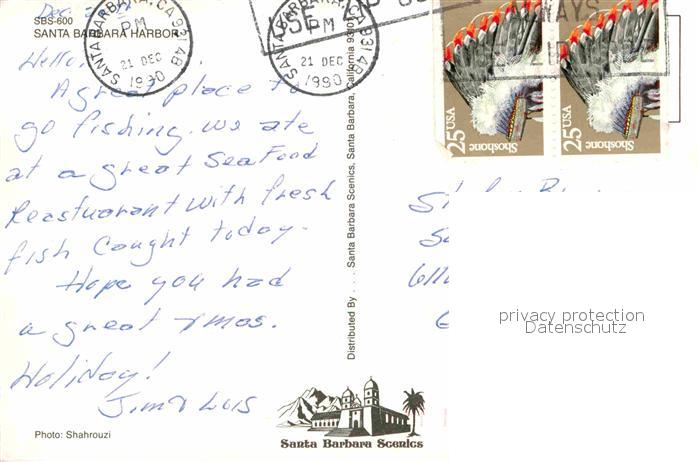 Dec.
SBS-600
SANTA BARBARA HARBOR
SANTA BARBARA, CA 93148
PM
21 DEC
1990
SANTA BARBARA, CA 93148
PM
21 DEC
1990
25 USA
Shoshone
25 USA
Shoshone
Hello,
A great place to
go fishing. We ate
at a great Sea Food
Reastuarant with fresh
fish Caught today.
Hope you had
a great Xmas.
Holiday!
Jim & Luis
Photo: Shahrouzi
Distributed By . . . Santa Barbara Scenics, Santa Barbara, California
Santa Barbara Scenics
privacy protection
Datenschutz